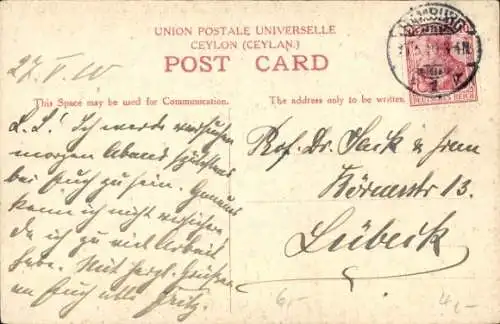 UNION POSTALE UNIVERSELLE
CEYLON (CEYLAN.)
POST CARD
This Space may be used for Communication.
The address only to be written
27. V. 10
L. L! Ich werde versuchen
morgen Abend spätestens
bei Euch zu sein. Genaues
kann ich nicht versichern
da ich zu viel Arbeit
habe. Mit herzl. Grüßen
an Euch alle Fritz.
Prof. Dr. Sack & Frau
Körnerstr 13.
Lübeck
HAMBURG
DEUTSCHES REICH
6,-
4,-